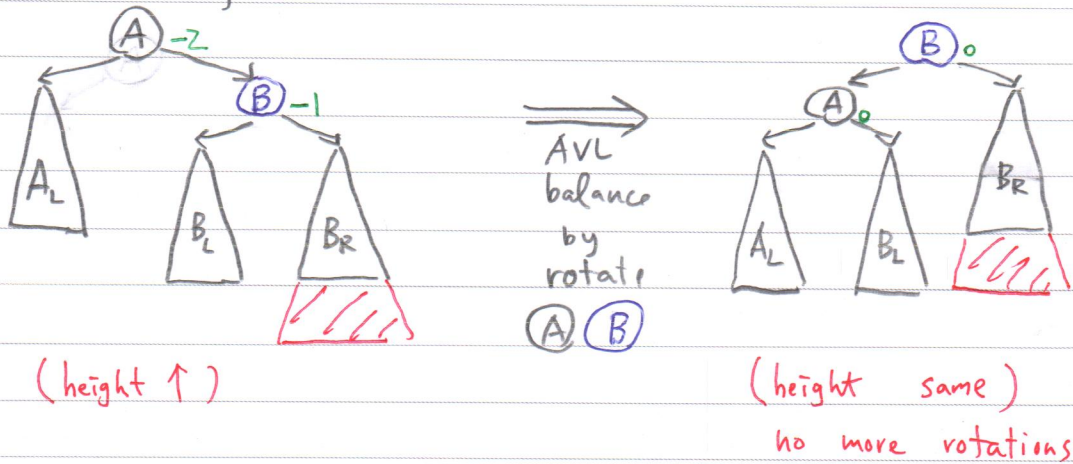 A -2
B -1
A_L
B_L
B_R
(height ↑)
⇒
AVL
balance
by
rotate
A B
B 0
A 0
B_R
A_L
B_L
(height same)
no more rotations